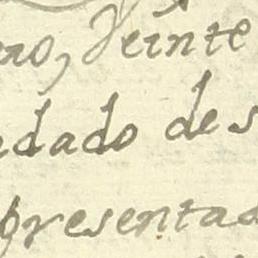 ro, Veinte
dado des
presentad